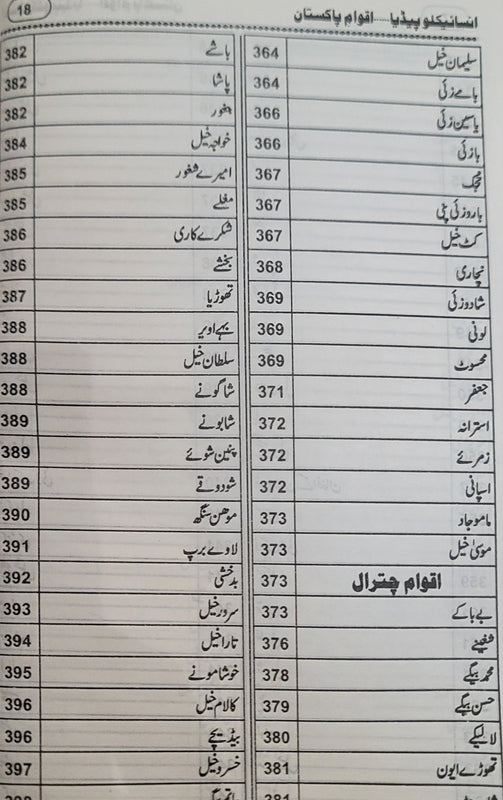 انسائیکلوپیڈیا.....اقوام پاکستان
18
سلیمان خیل 364
بامے زئی 364
یاسین زئی 366
بازئی 366
367
باروزئی پنی 367
کٹ خیل 367
نچاری 368
شادوزئی 369
لونی 369
محسوٹ 369
جعفر 371
استرانہ 372
زمرئے 372
اسپانی 372
ماموجاد 373
موسیٰ خیل 373
اقوام چترال 373
بے باکے 373
376
محمد بیگے 378
حسن بیگے 379
لالیکے 380
تھوڑے ایون 381
381
باشے 382
پاشا 382
382
خواجہ خیل 384
امیرے شغور 385
مغلے 385
شکرے کاری 386
بخشے 386
تھوڑیا 387
بہے اویر 388
سلطان خیل 388
شاگونے 388
شابونے 389
پنین شوئے 389
شودوقے 389
موھن سنگھ 390
لاوے برپ 391
بدخشی 392
سرور خیل 393
تارا خیل 394
خوشامونے 395
کالام خیل 396
بیڈیچے 396
خسرو خیل 397